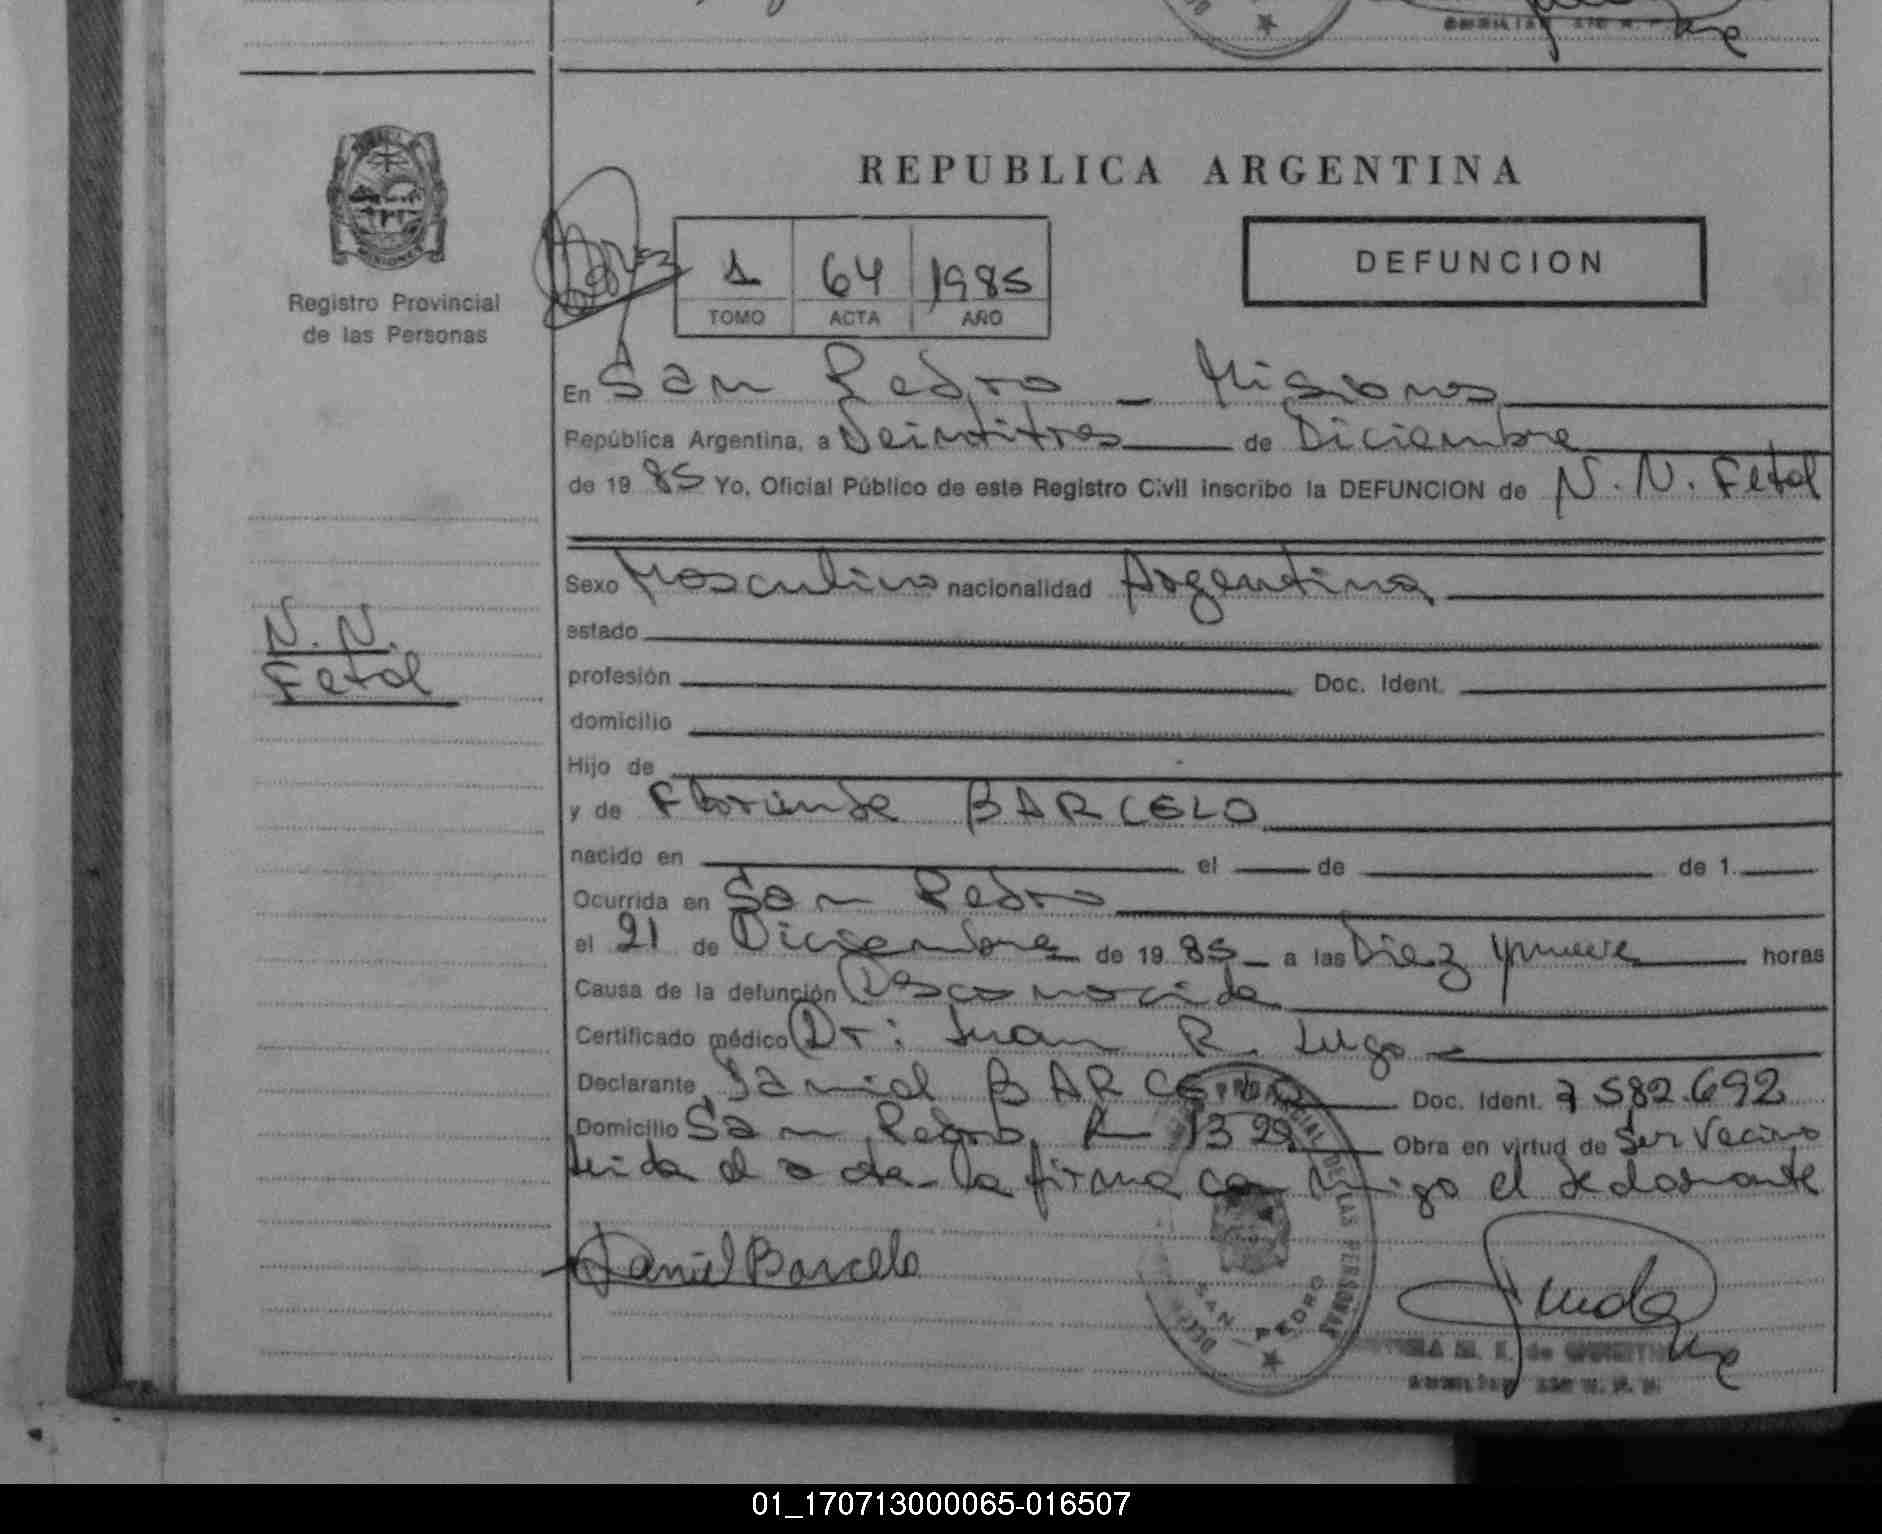 REPUBLICA ARGENTINA
DEFUNCION
Registro Provincial
de las Personas
1 64 1985
TOMO ACTA AÑO
En San Pedro - Misiones
República Argentina, a Veintitres de Diciembre
de 1985 Yo, Oficial Público de este Registro Civil inscribo la DEFUNCION de N.N. Fetal
N.N.
Fetal
Sexo Masculino nacionalidad Argentina
estado
profesión Doc. Ident.
domicilio
Hijo de
y de BARCELO
nacido en el de de 1.
Ocurrida en San Pedro
el 21 de Diciembre de 1985 a las Diez y nueve horas
Causa de la defunción Desconocida
Certificado médico Dr: Juan R. Lugo
Declarante Daniel BARCELO Doc. Ident. 7582.692
Domicilio San Pedro, R 1329 Obra en virtud de Ser Vecino
leida el acta la firma conmigo el declarante
Daniel Barcelo
DE LAS PERSONAS
SAN PEDRO
01_170713000065-016507